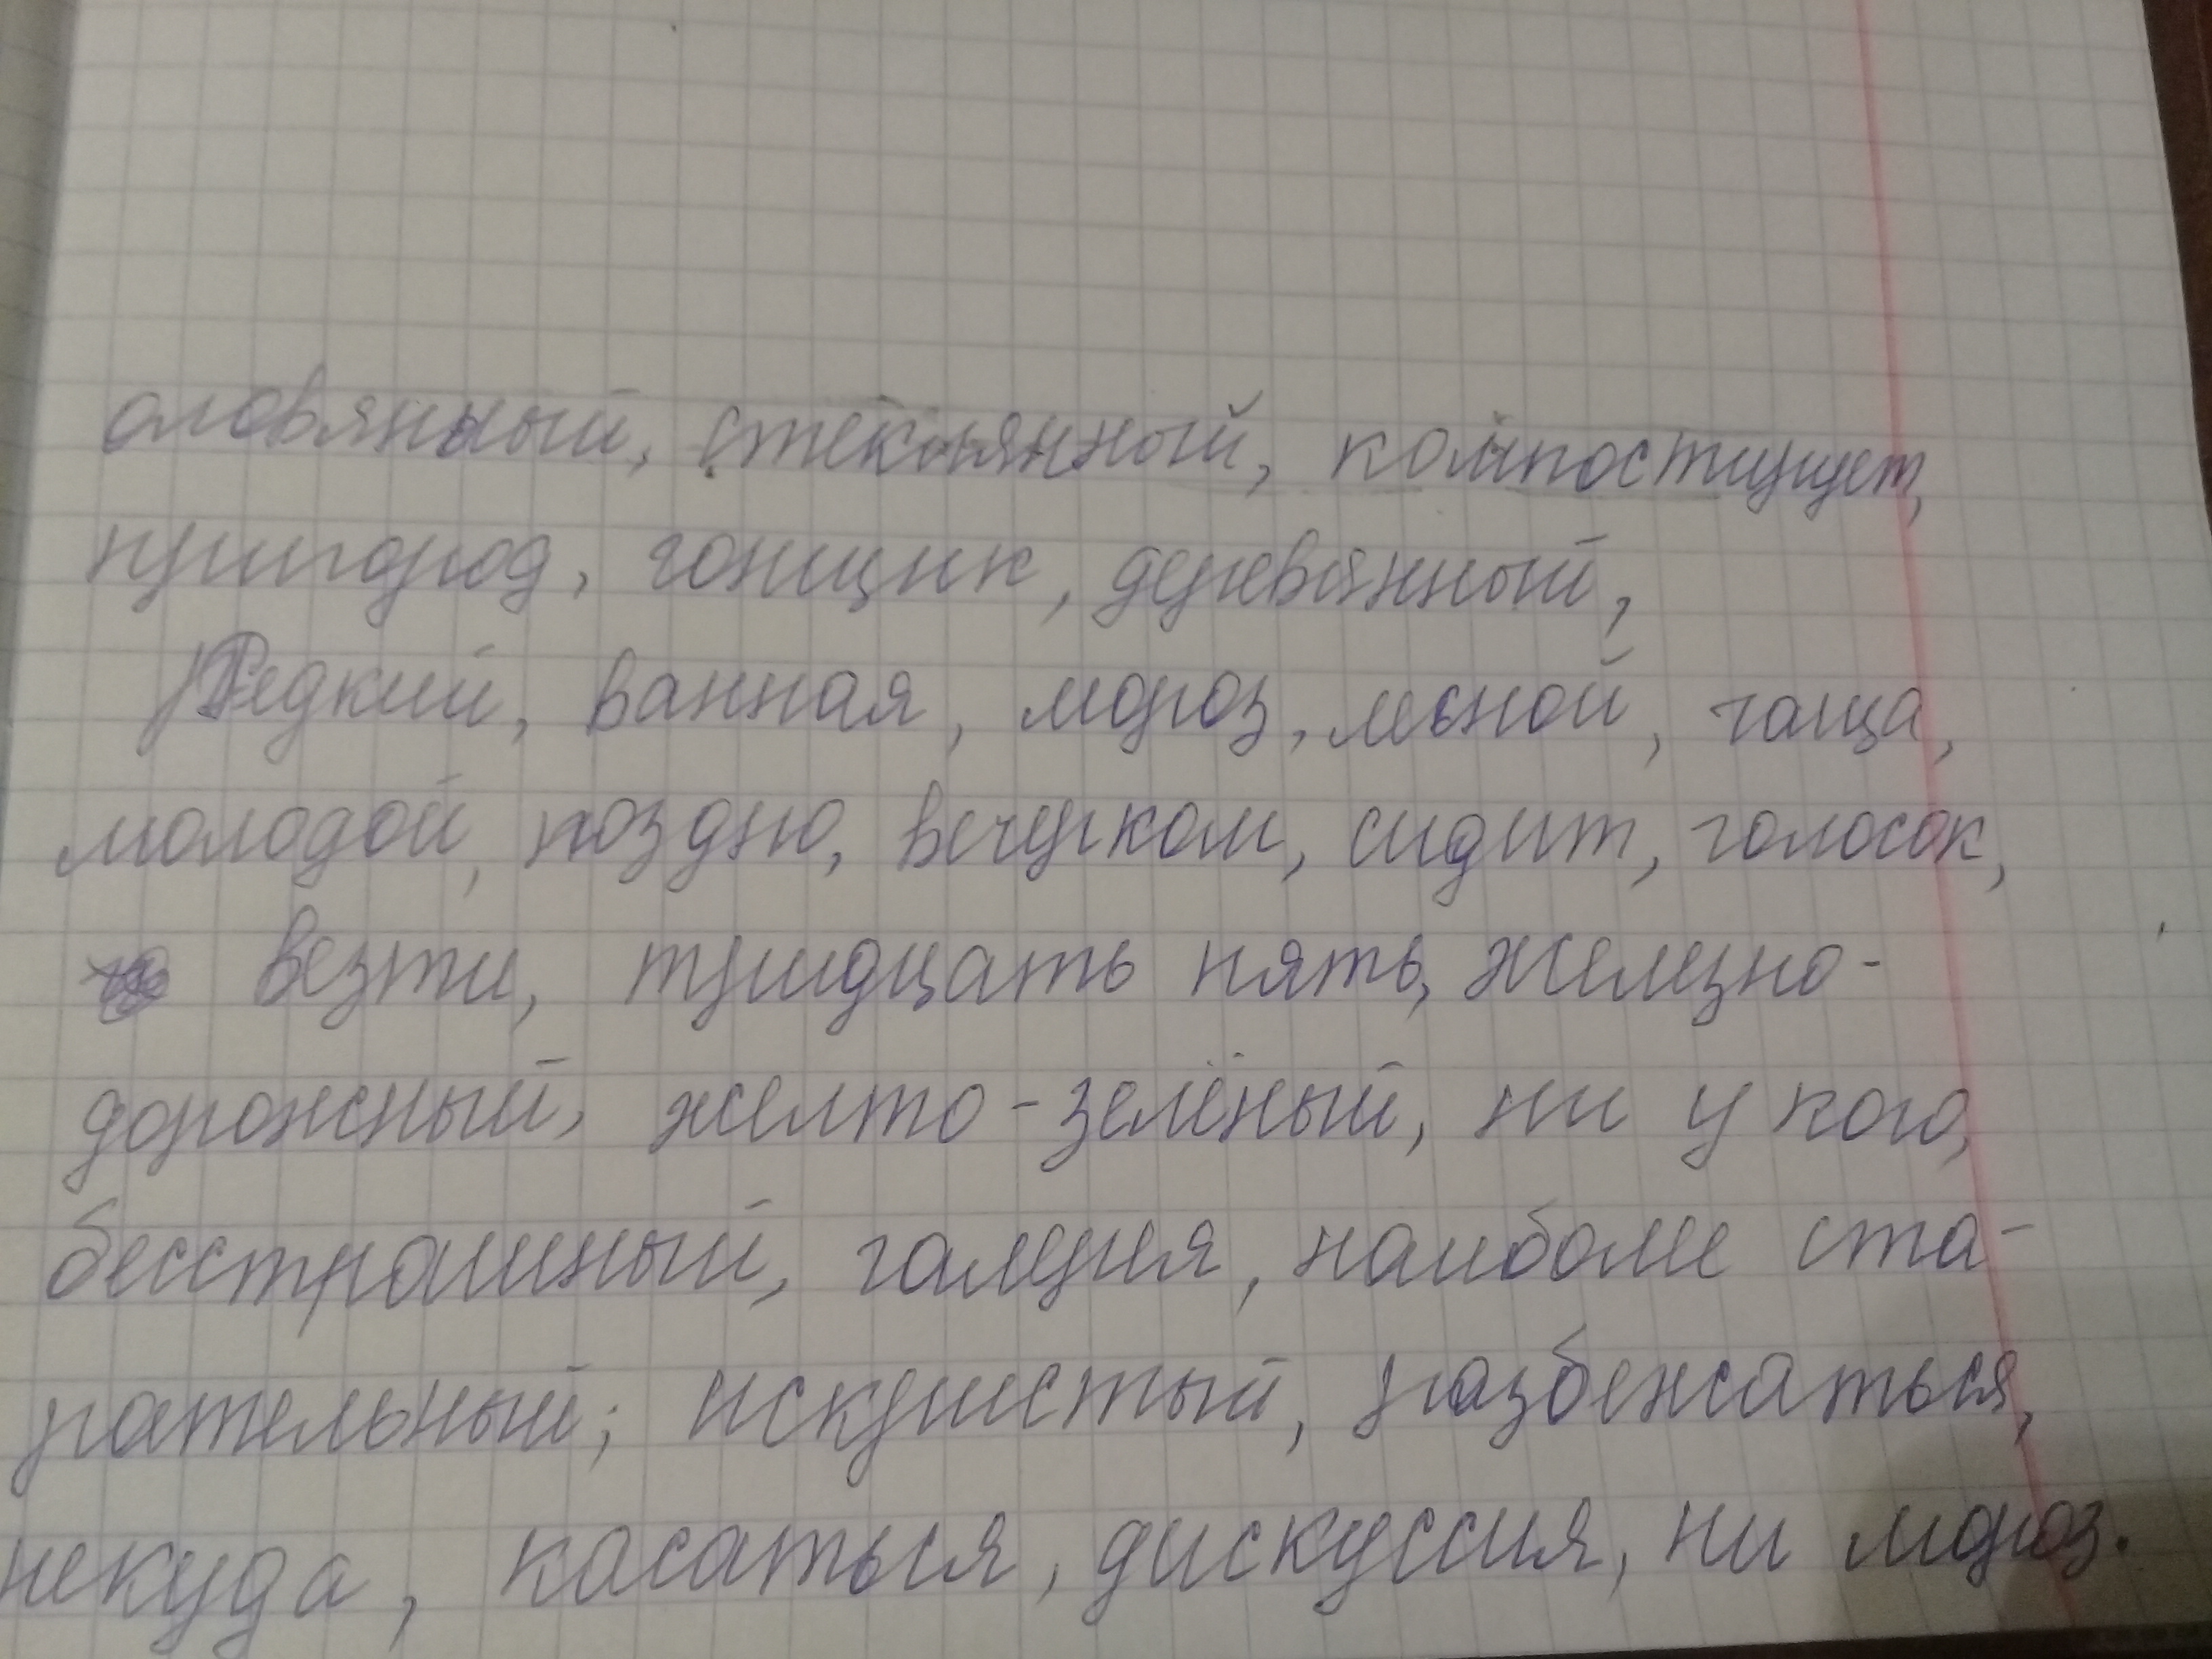 оловянный, стеклянный, компостирует,
пригород, гонщик, деревянный,
Редкий, ванная, мороз, лесной, чаща,
молодой, поздно, вечерком, сидит, голосок,
везти, тридцать пять, железно-
дорожный, желто-зелёный, ни у кого,
бесстрашный, галерея, наиболее ста-
рательный; искристый, разбежаться,
некуда, касаться, дискуссия, ни мороз.